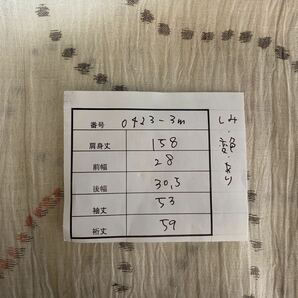 番号 0423-3m
肩身丈 158
前幅 28
後幅 30,5
袖丈 53
裄丈 59
しみ・変色・あり